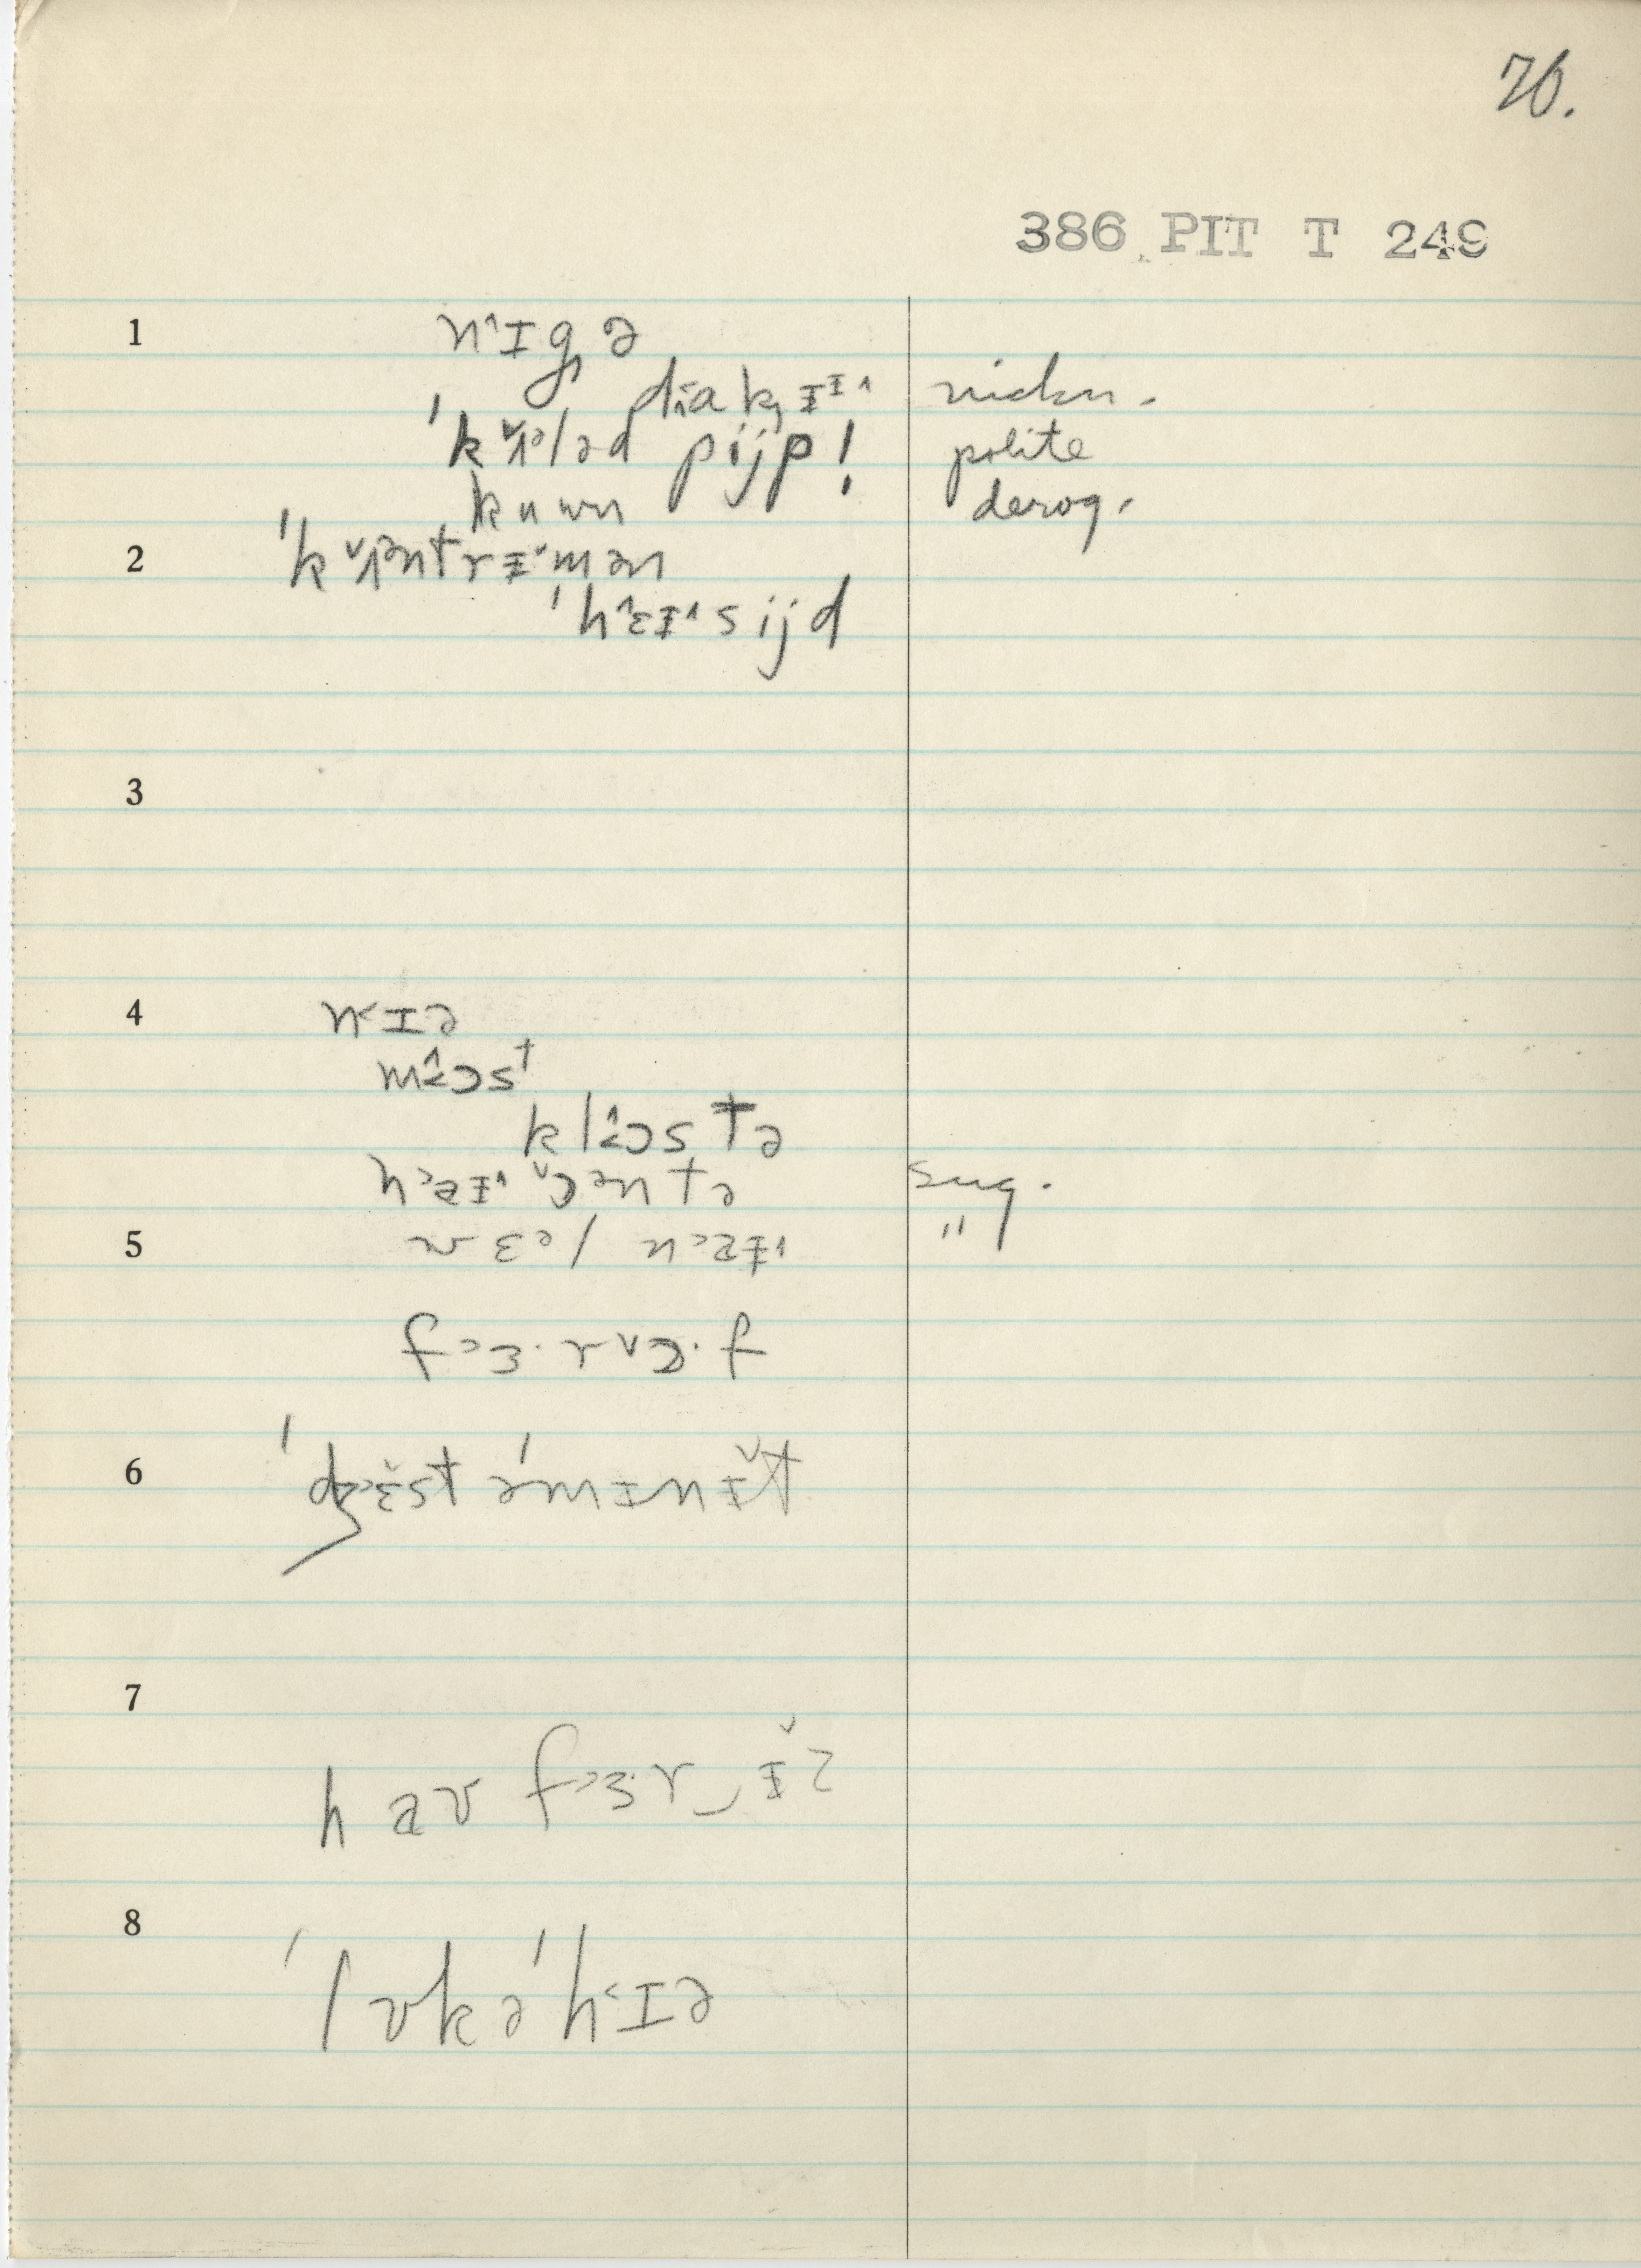 76.
386 PIT T 249
1 n˄ɪgə
diakɪɪ˄ nickn.
ˈkʌ˅ələd pijp! polite
kuwn derog.
2 ˈkʌ˅əntrɪ˅mən
ˈh˄ɛɪ˄sijd
3
4 n˂ɪə
mɔst
klɔstə
h˃aɪ˄ ɔ˅əntə sug.
5 wɛəl n˃aɪ˄ "
f˃ɜ·rʌ˅ɔ·f
6 ˈdʒ˃ɛ˅st əˈmɪnɪ˅t
7
hav f˃ɜ·r‿ɪ˅z
8
ˈlʊkəˈh˂ɪə